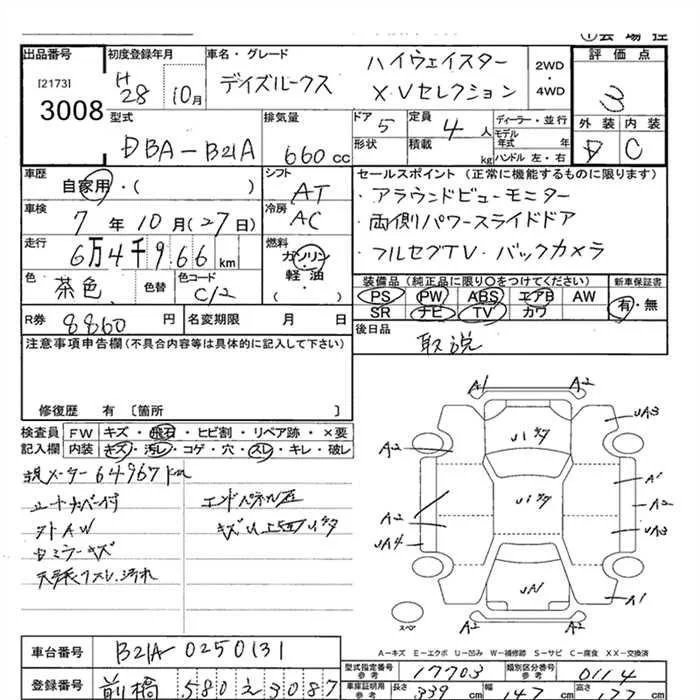 ①会場控
出品番号 初度登録年月 車名・グレード 評価点
[2173] 3008
H28 10月
デイズルークス ハイウェイスター X・Vセレクション
2WD・4WD
3
型式 DBA-B21A
排気量 660cc
ドア 5 定員 4人
形状 積載 kg
ディーラー・並行
モデル年式 年
ハンドル 左・右
外装 内装
D C
車歴 自家用・( )
シフト AT
セールスポイント (正常に機能するものに限ります)
・アラウンドビューモニター
・両側パワースライドドア
・フルセグTV・バックカメラ
車検 7年10月(27日)
冷房 AC
走行 6万4千966km
燃料 ガソリン・軽油・( )
色 茶色 色替 色コード C/2
装備品 (純正品に限り○をつけてください) 新車保証書
PS PW ABS エアB AW
SR ナビ TV カワ
有・無
R券 8860円 名変期限 月 日
後日品 取説
注意事項申告欄(不具合内容等は具体的に記入して下さい)
修復歴 有 [箇所 ]
検査員 FW キズ・飛石・ヒビ割・リペア跡・×要
記入欄 内装 キズ・汚レ・コゲ・穴・スレ・キレ・破レ
現メーター64967km
シートカバー付
外AW
ミラーキズ
天張りスレ、汚れ
エンドパネル左
キズU
A1 A2
UA3
A2
U1キズ
A1
A2
U1キズ
A2
UA3
UA4
UA1
A2
スペア
A-キズ E-エクボ U-凹み W-補修跡 S-サビ C-腐食 XX-交換済
車台番号 B21A-0250131
型式指定番号 参考 17703 類別区分番号 参考 0114
登録番号 前橋 580 え 3087
車庫証明用 参考 長さ 339cm 幅 147cm 高さ 177cm